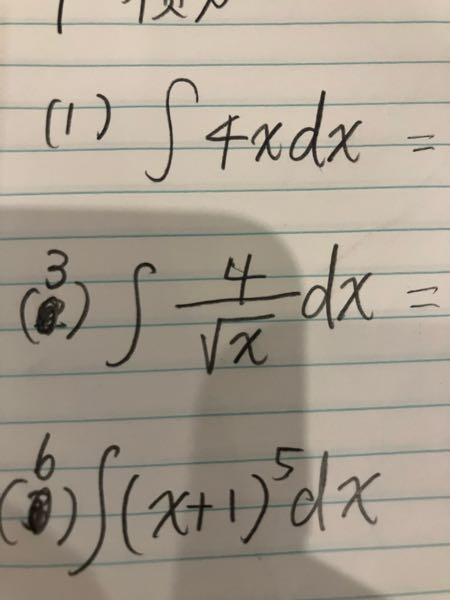 (1) ∫ 4x dx =
(3) ∫ 4/√x dx =
(6) ∫ (x+1)⁵ dx